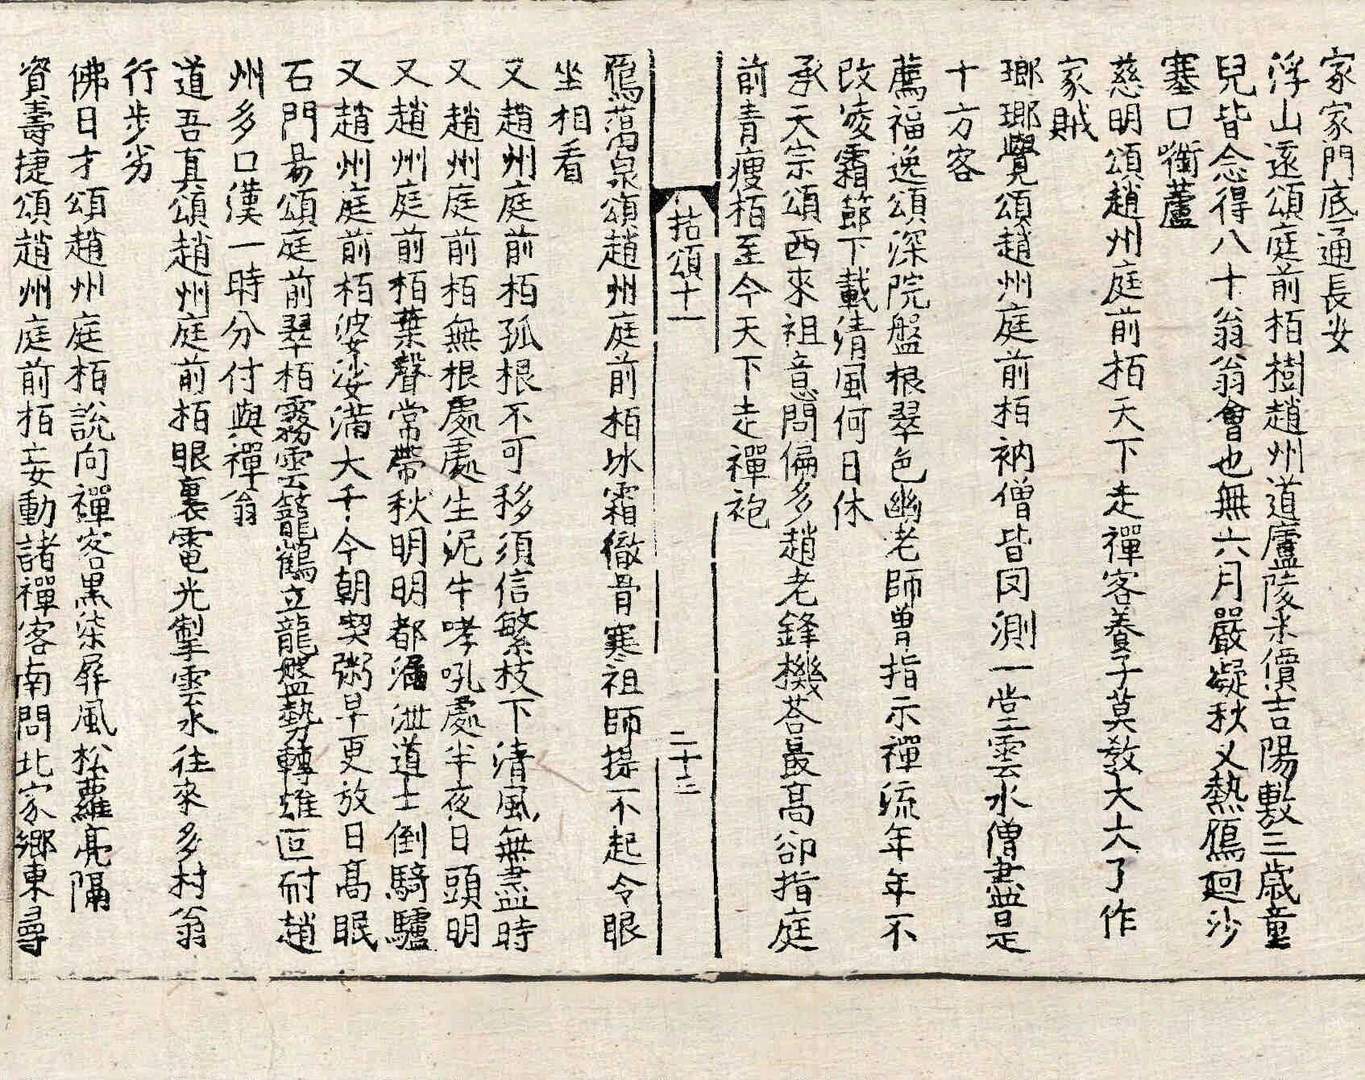 家家門底通長安
浮山遠頌庭前栢樹趙州道廬陵米價吉陽敷三歲童
兒皆念得八十翁翁會也無六月嚴凝秋又熱鴈迴沙
塞口嘲蘆
慈明頌趙州庭前栢天下走禪客養子莫教大大了作
家賊
瑯瑘覺頌趙州庭前栢衲僧皆罔測一堂雲水僧盡是
十方客
薦福逸頌深院盤根翠色幽老師曾指示禪流年年不
改凌霜節下載清風何日休
承天宗頌西來祖意問偏多趙老鋒機荅最高卻指庭
前青瘦栢至今天下走禪袍
拈頌十一
二十三
鴈蕩泉頌趙州庭前栢冰霜徹骨寒祖師提不起令眼
坐相看
又趙州庭前栢孤根不可移須信繁枝下清風無盡時
又趙州庭前栢無根處處生泥牛哮吼處半夜日頭明
又趙州庭前栢葉聲常帶秋明明都漏泄道士倒騎驢
又趙州庭前栢婆娑滿大千今朝喫粥早更放日高眠
石門易頌庭前翠栢霧雲籠鶴立龍盤勢轉雄叵耐趙
州多口漢一時分付與禪翁
道吾真頌趙州庭前栢眼裏電光掣雲水往來多村翁
行步劣
佛日才頌趙州庭栢說向禪客黑柒屏風松蘿亮隔
資壽捷頌趙州庭前栢妄動諸禪客南問北家鄉東尋